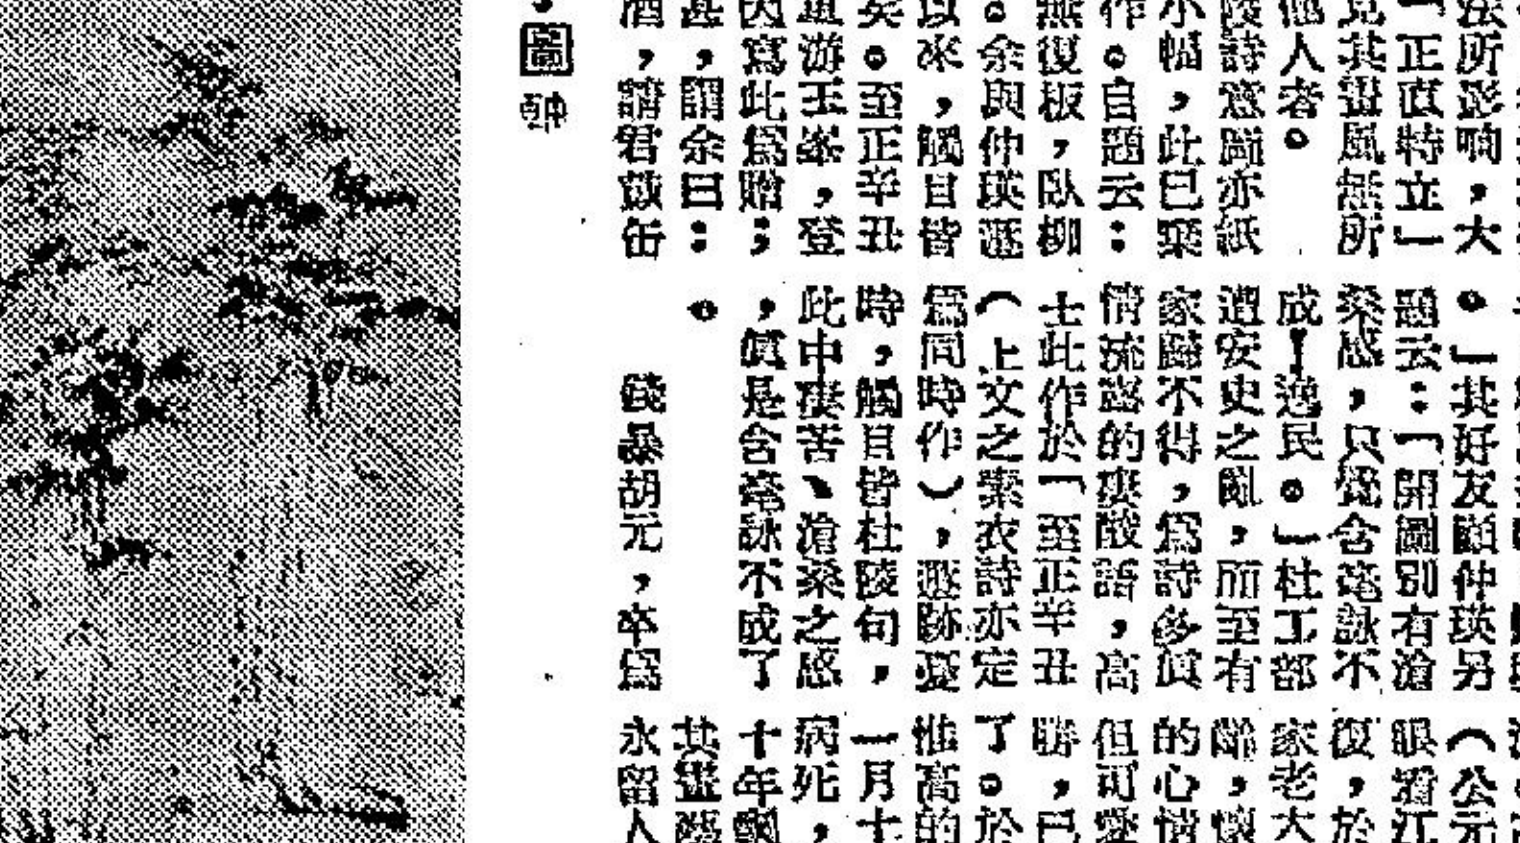 法所影响，大
「正直特立」
見其畫風無所
他人者。
陵詩意圖亦紙
小幅，此已棄
作。自題云：
無復板，臥柳
。余與仲瑛避
以來，觸目皆
矣。至正辛丑
道游玉峯，登
因寫此爲贈；
甚，謂余曰：
酒，請君鼓缶
圖
。」其好友顧仲瑛另
題云：「開圖別有滄
桑感，只覺含毫詠不
成—逸民。」杜工部
遭安史之亂，而至有
家歸不得，爲詩多眞
情流露的淒酸語，高
士此作於「至正辛丑
（上文之索衣詩亦定
爲同時作），避跡憂
時，觸目皆杜陵句，
此中淒苦、滄桑之感
，眞是含毫詠不成了
。
殘暴胡元，卒爲
（公元
眼看江
復，於
家老大
離，懷
的心情
但可愛
勝，已
了。於
惟高的
一月十
病死，
十年飄
其畫
永留人